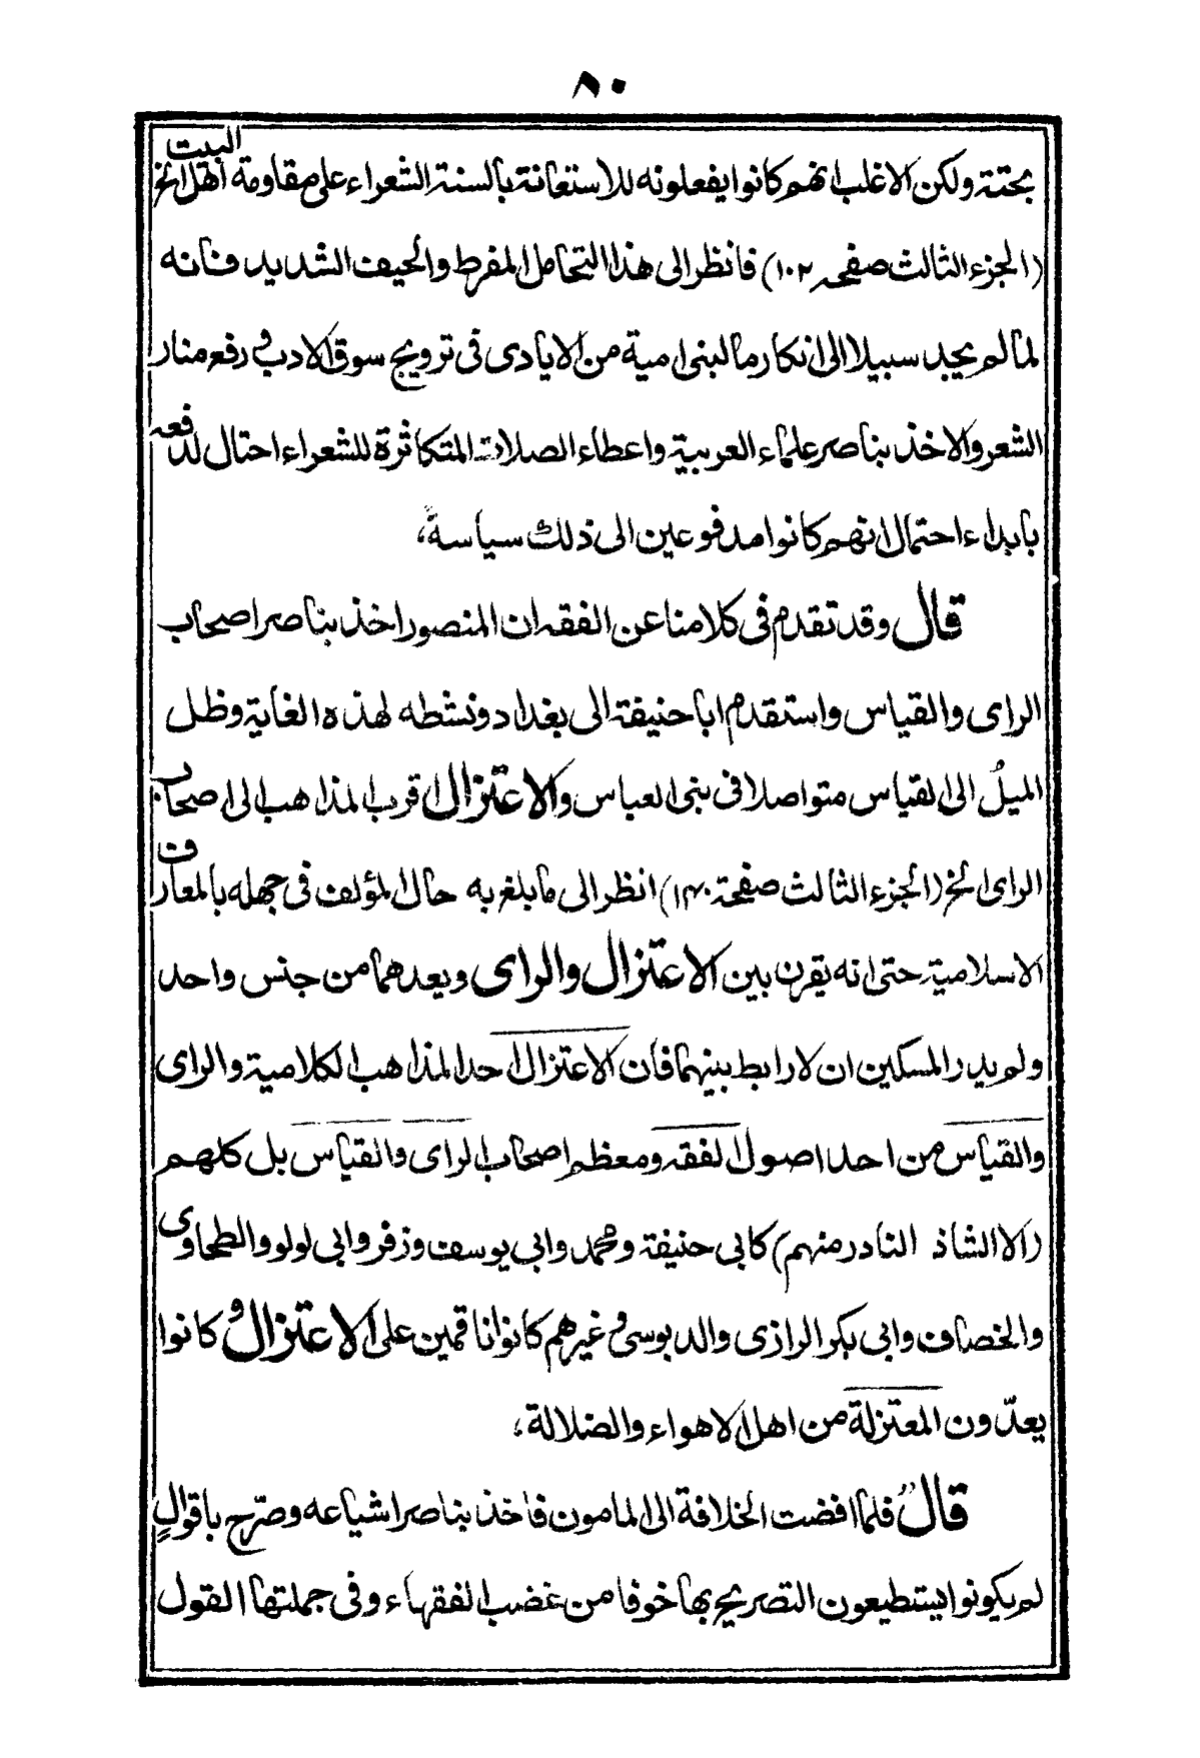 ٨٠
بحتة ولكن الاغلب انهم كانوا يفعلونه للاستعانة بالسنة الشعراء على مقاومة اهل البيت الخ
(الجزء الثالث صفحه ١٠٢) فانظر الى هذا التحامل المفرط والحيف الشديد فانه
لما لم يجد سبيلا الى انكار ما لبنى امية من الايادى فى ترويج سوق الادب و رفع منار
الشعر والاخذ بناصر علماء العربية واعطاء الصلات المتكاثرة للشعراء احتال لدفعه
بابداء احتمال انهم كانوا مدفوعين الى ذلك سياسة،
قال وقد تقدم فى كلامنا عن الفقه ان المنصور اخذ بناصر اصحاب
الراى والقياس واستقدم ابا حنيفة الى بغداد ونشطه لهذه الغاية وظل
الميلُ الى القياس متواصلا فى بنى العباس والاعتزال اقرب المذاهب الى اصحاب
الراى الخ (الجزء الثالث صفحة ١٤٠) انظر الى ما بلغ به حال المؤلف فى جهله بالمعارف
الاسلامية حتى انه يقرن بين الاعتزال والراى ويعدهما من جنس واحد
ولم يدر المسكين ان لا رابط بينهما فان الاعتزال احد المذاهب الكلامية والراى
والقياس من احد اصول الفقه ومعظم اصحاب الراى والقياس بل كلهم
(الا الشاذ النادر منهم) كابى حنيفة ومحمد وابى يوسف وزفر وابى لولو والطحاوى
والخصاف وابى بكر الرازى والدبوسى و غيرهم كانوا ناقمين على الاعتزال و كانوا
يعدّون المعتزلة من اهل الاهواء والضلالة،
قال فلما افضت الخلافة الى المامون فاخذ بناصر اشياعه وصرّح باقوالٍ
لم يكونوا يستطيعون التصريح بها خوفا من غضب الفقهاء وفى جملتها القول